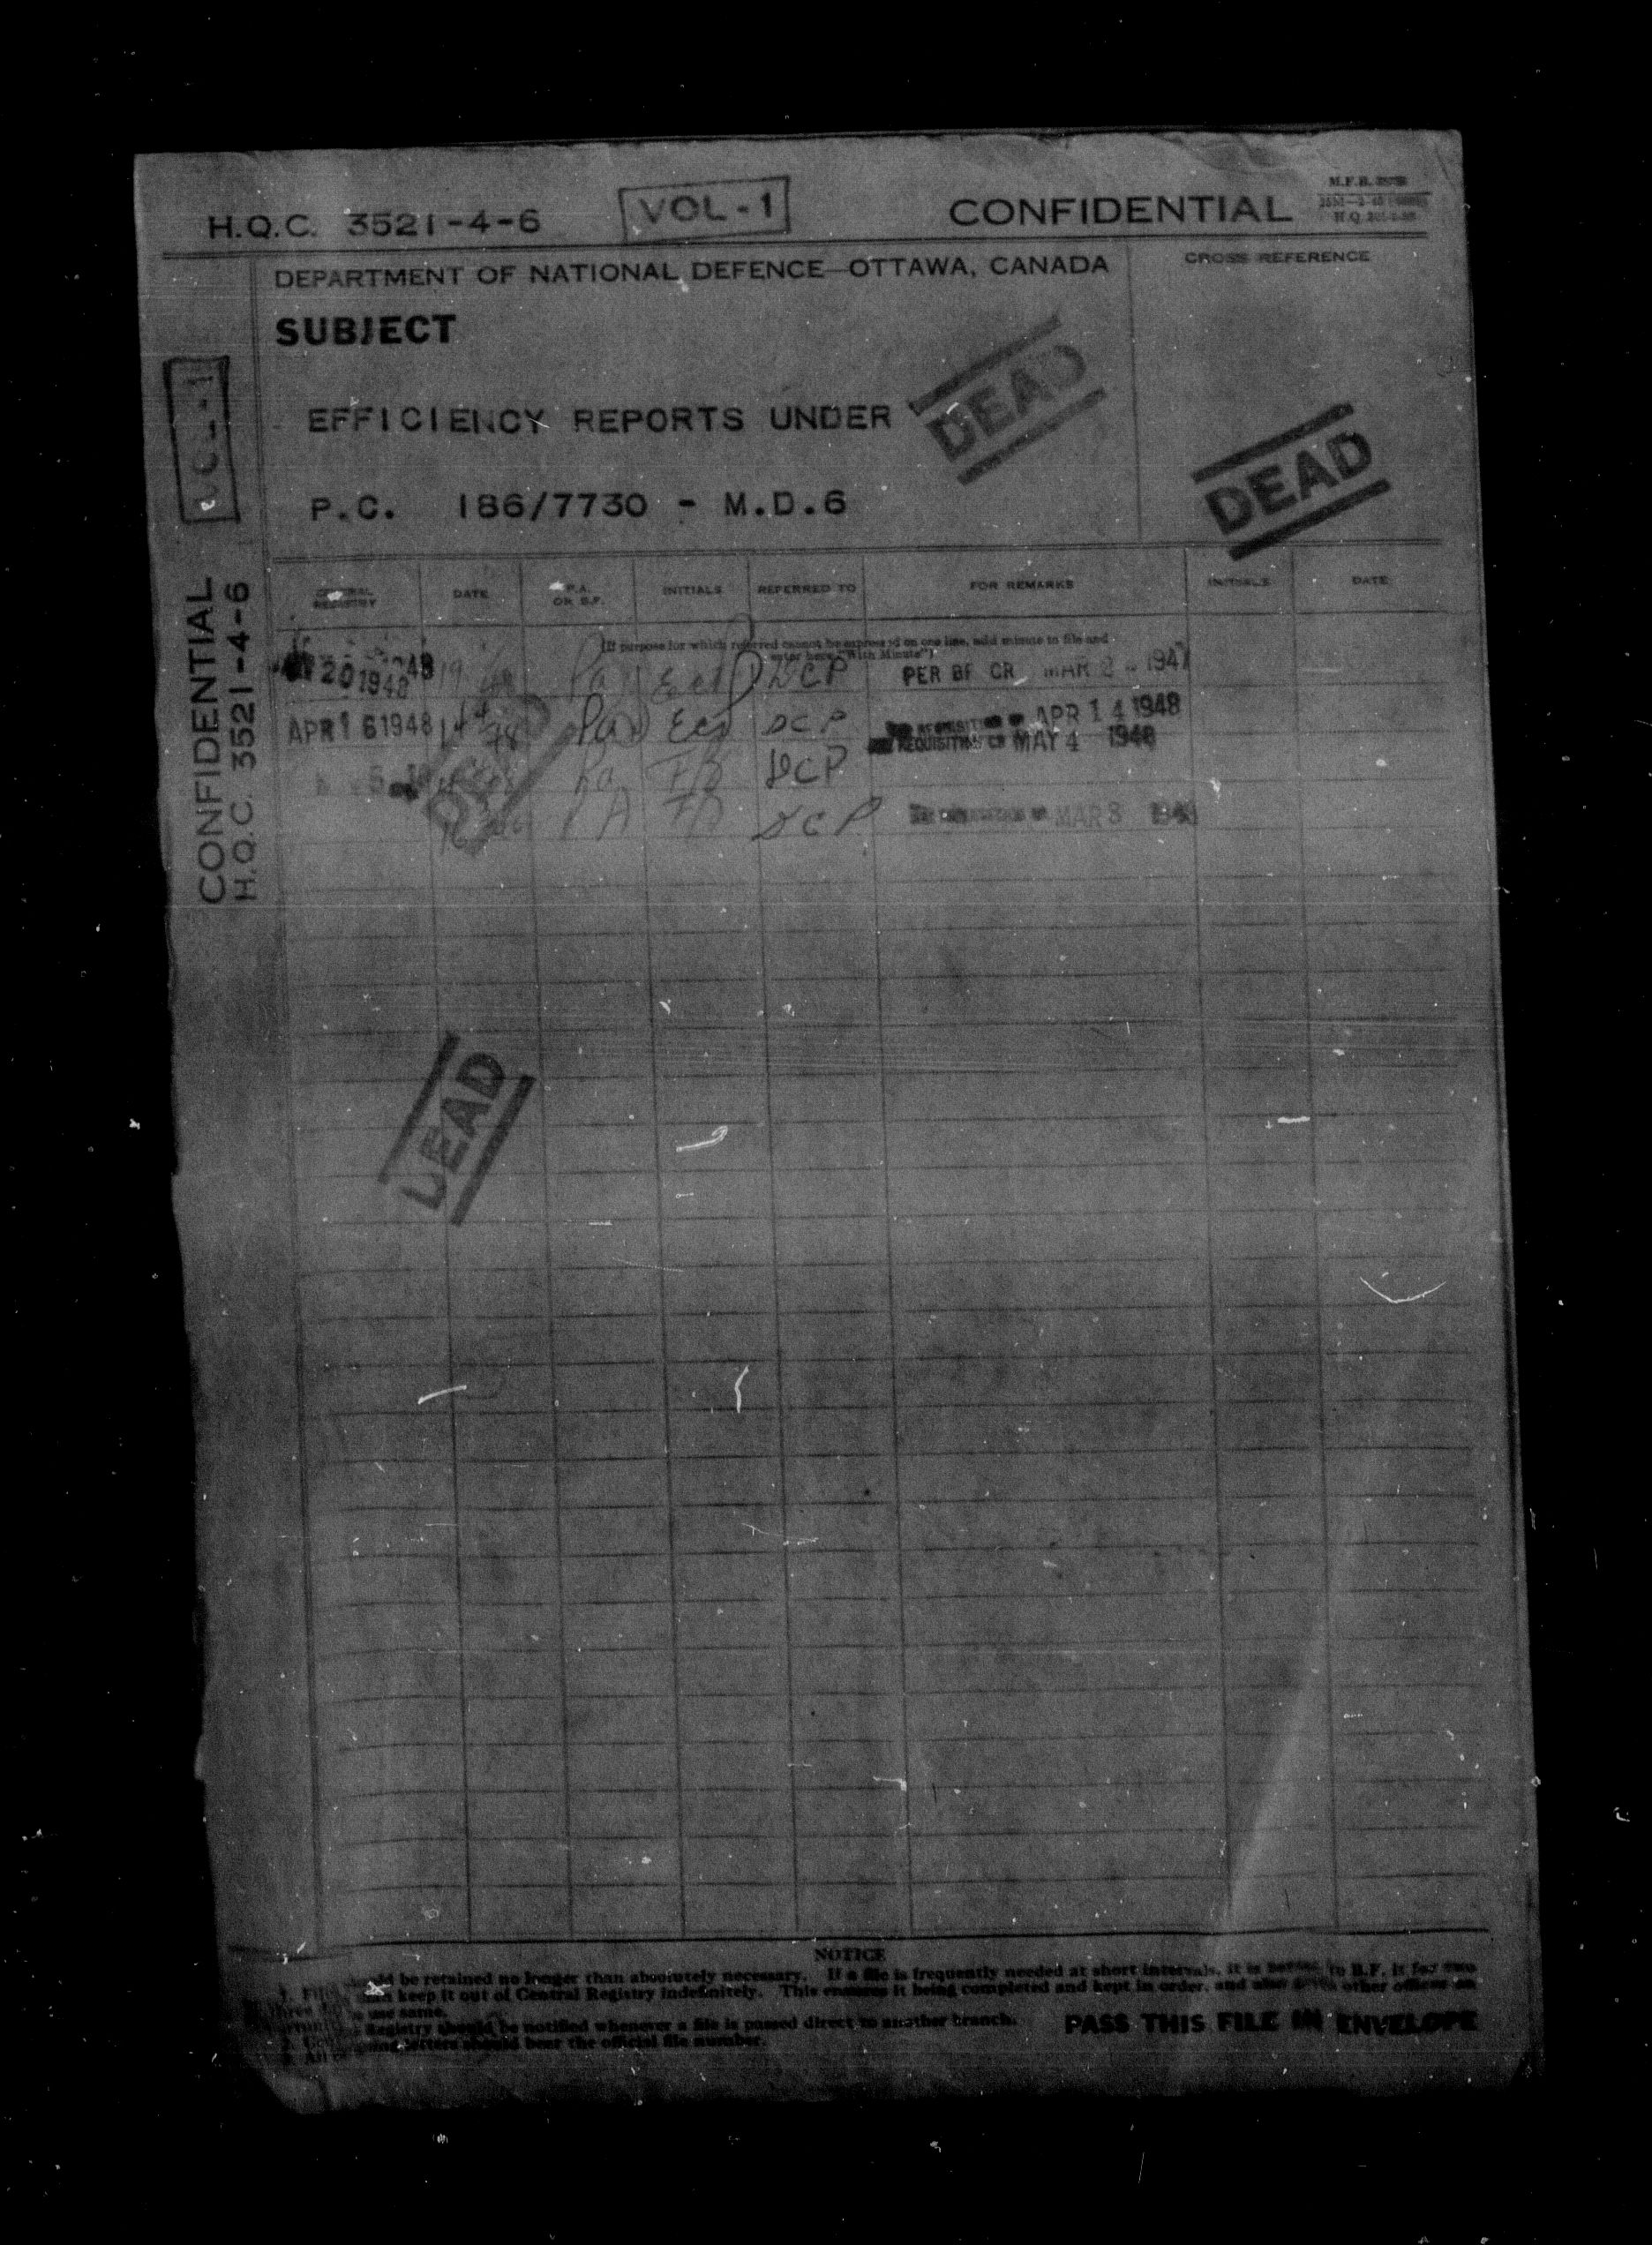 H.Q.C. 3521-4-6
VOL-1
CONFIDENTIAL
DEPARTMENT OF NATIONAL DEFENCE—OTTAWA, CANADA
CROSS REFERENCE
SUBJECT
EFFICIENCY REPORTS UNDER
P.C. 186/7730 - M.D.6
DEAD
DEAD
CONFIDENTIAL
H.Q.C. 3521-4-6
CENTRAL REGISTRY DATE P.A. OR B.F. INITIALS REFERRED TO FOR REMARKS INITIALS DATE
(If purpose for which referred cannot be expressed on one line, add minute to file and
enter here "With Minute")
20 1948 DCP PER BF CR MAR 1947
APR 16 1948 Pa DCP REQUISITION APR 14 1948
REQUISITION MAY 4 1948
Pa DCP
PA DCP MAR 3
DEAD
DEAD
NOTICE
be retained no longer than absolutely necessary. If a file is frequently needed at short intervals, it is to B.F. it for two
keep it out of Central Registry indefinitely. This ensures it being completed and kept in order, and other offices
same.
Registry should be notified whenever a file is passed direct to another branch.
letters should bear the official file number.
PASS THIS FILE IN ENVELOPE